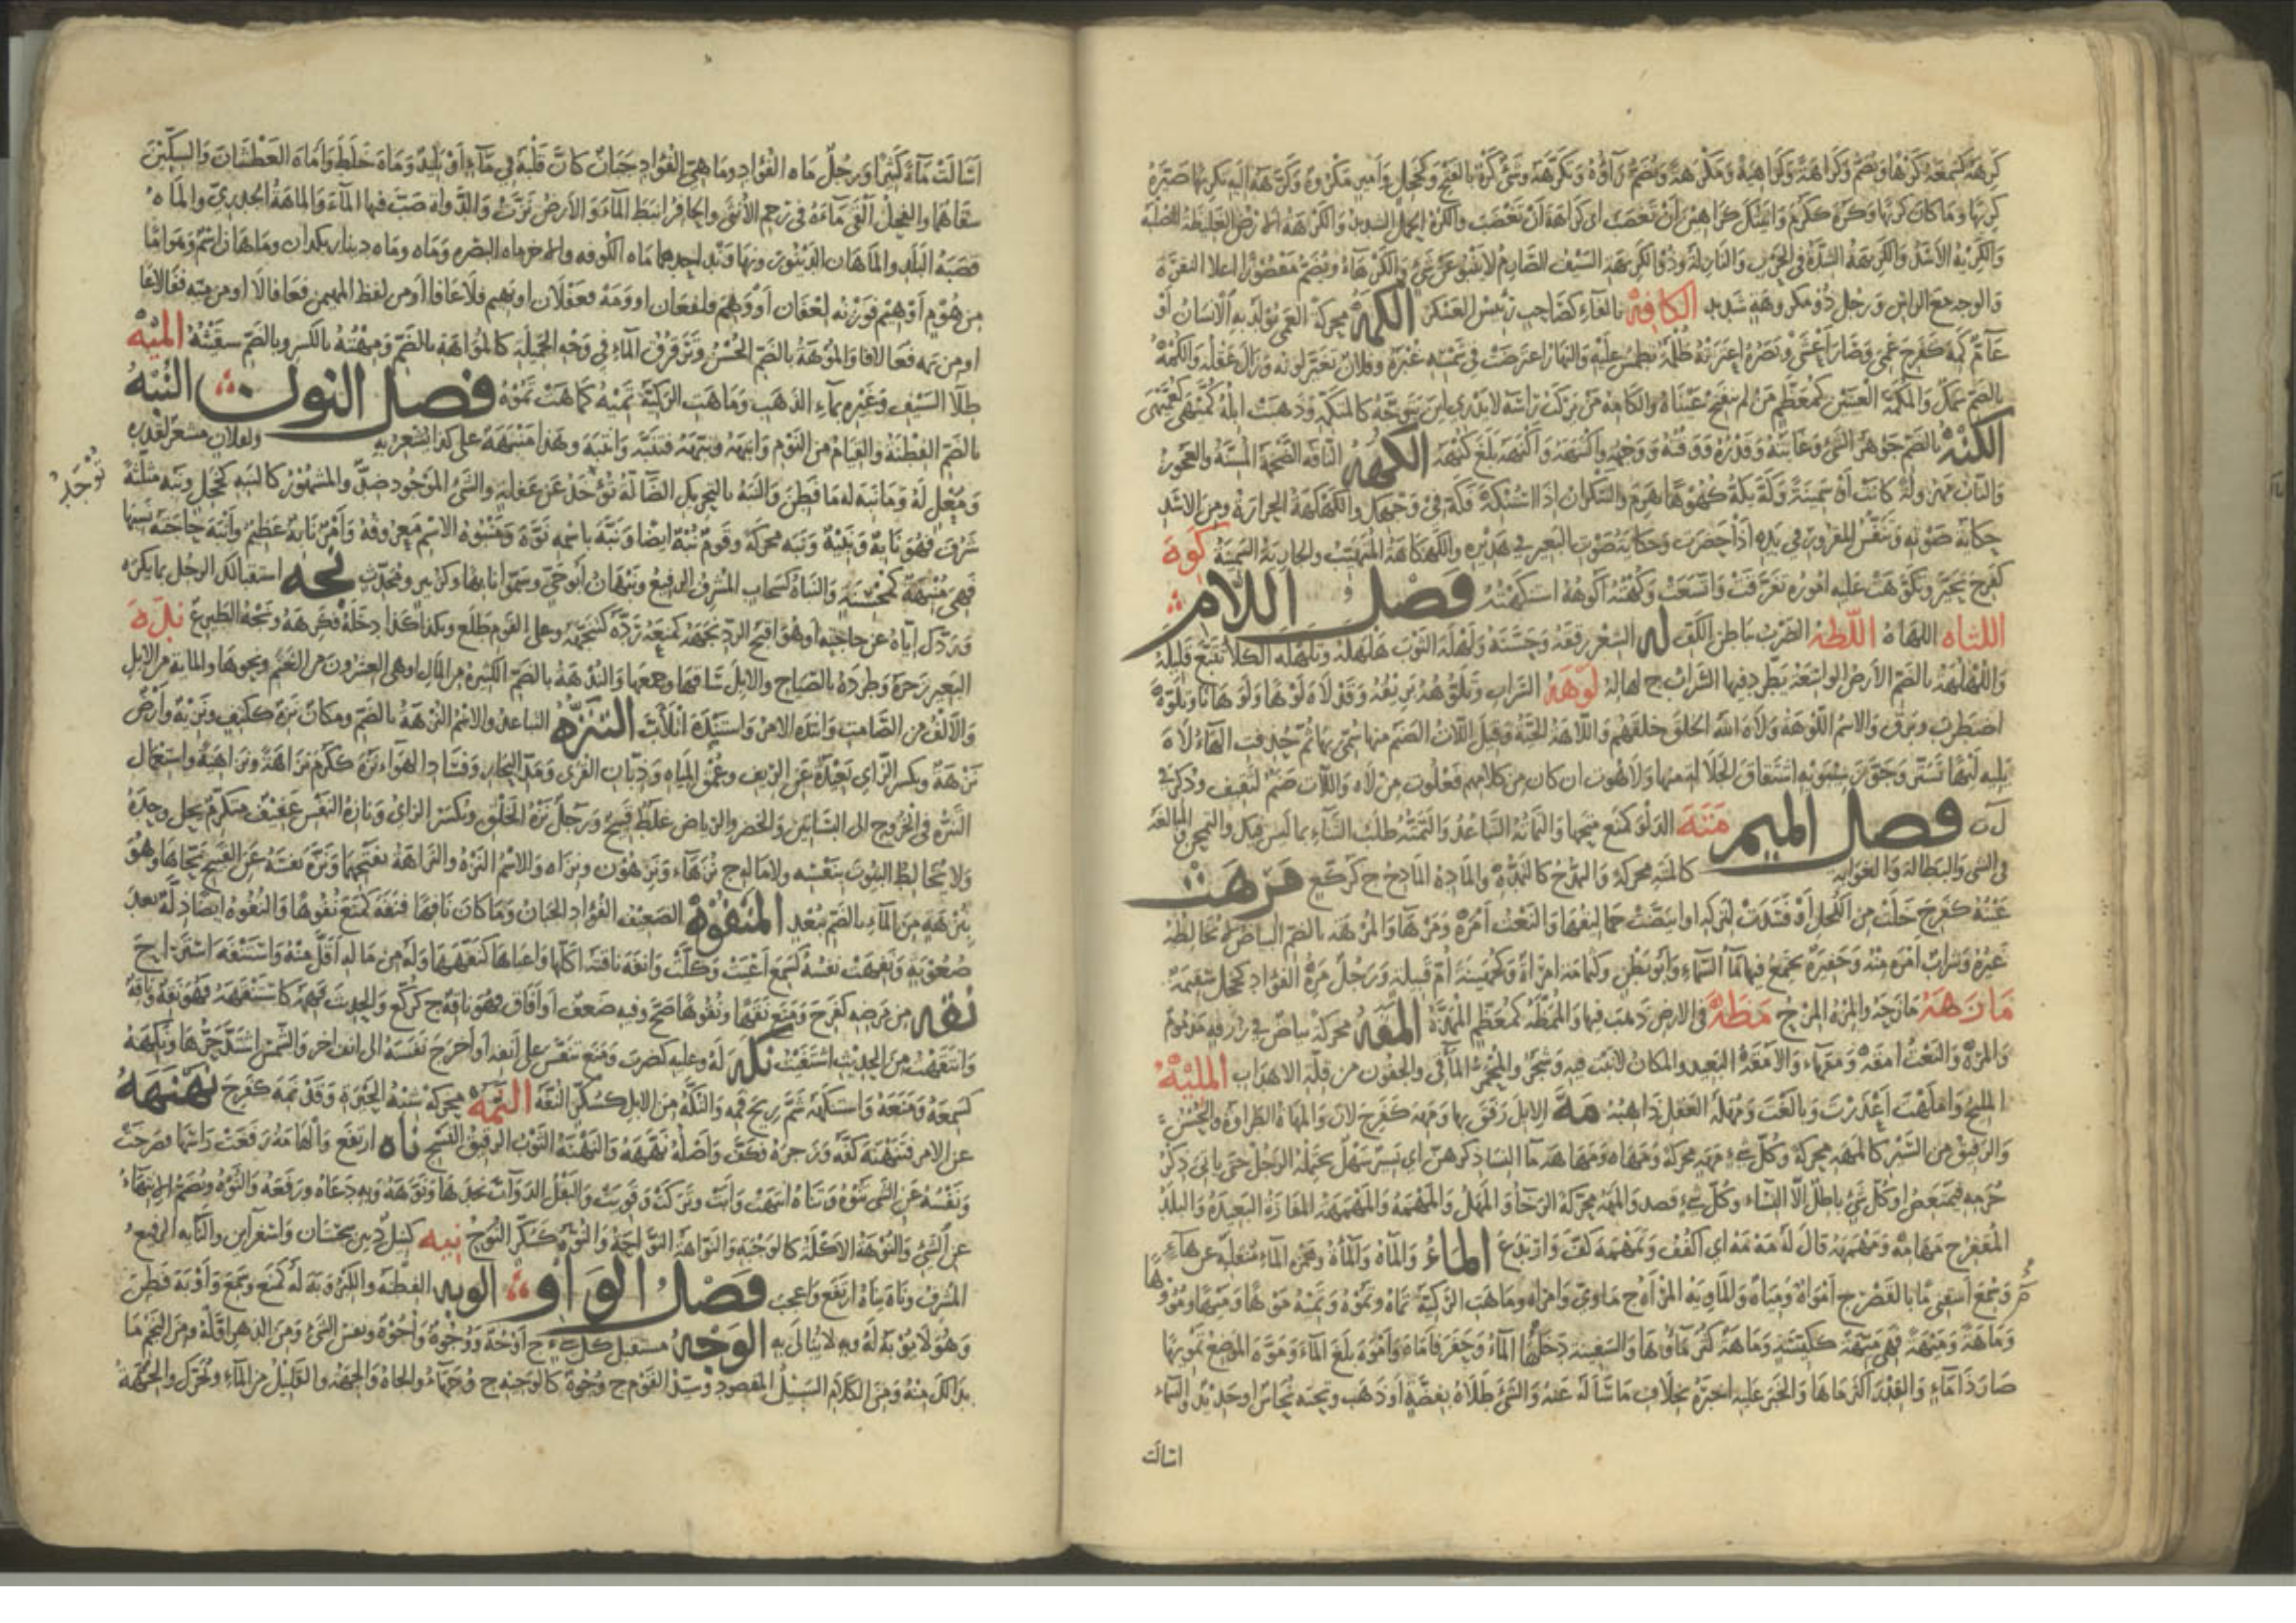 كَرِهَهُ كَسَمِعَهُ كَرْهًا ويُضَمُّ وكَرَاهَةً وكَرَاهِيَةً ومَكْرَهَةً وتُضَمُّ رَاؤُهُ وتَكَرَّهَهُ وشَيْءٌ كَرْهٌ بالفَتْحِ وكَخَجِلٍ وأَمِيرٍ مَكْرُوهٌ وكَرَّهَهُ إليه تَكْرِيهًا صَيَّرَهُ
كَرِيهًا وما كان كَرِيهًا وكَرُهَ ككَرُمَ
والكَرِيهَةُ الشِّدَّةُ في الحَرْبِ والنَّازِلَةُ وذُو الكَرِيهَةِ السَّيْفُ الصَّارِمُ لا يَنْبُو عن شَيْءٍ والكَرْهَاءُ ويُضَمُّ مَقْصُورًا أعلا النُّقْرَةِ
والوجه مع الراس ورَجُلٌ ذُو مَكْرُوهَةٍ شديد الكافِهُ بالفاءِ كصَاحِبٍ رَئِيسُ العَسْكَرِ الكَمَهُ محركةً العَمَى يُولَدُ بِهِ الإنسانُ أَوْ
عامٌّ كَمِهَ كفَرِحَ عَمِيَ وصَارَ أَعْشَى وبَصَرُهُ اعْتَرَتْهُ ظُلْمَةٌ تَطْمِسُ عليه والنَّهَارُ اعترضت في شَمْسِهِ غُبْرَةٌ وفُلَانٌ تَغَيَّرَ لَوْنُهُ وزَالَ عَقْلُهُ والكُمْهُ
بالضَّمِّ سَمَكٌ والمُكَمَّهُ العَيْنَيْنِ كمُعَظَّمٍ مَنْ لم تَنْفَتِحْ عَيْنَاهُ والكَامِهُ مَنْ يَرْكَبُ رَأْسَهُ لا يَدْرِي أَيْنَ يَتَوَجَّهُ كالمُتَكَمِّهِ وذَهَبَتْ إِبِلُهُ
الكُنْهُ بالضَّمِّ جَوْهَرُ الشَّيْءِ وغَايَتُهُ وقَدْرُهُ ووَقْتُهُ ووَجْهُهُ واكْتَنَهَهُ وأَكْنَهَهُ بَلَغَ كُنْهَهُ الكَهَّةُ النَّاقَةُ الضَّخْمَةُ المُسِنَّةُ والعَجُوزُ
حكاية صَوْتِهِ وتَنَفُّسُ المَقْرُورِ في يَدِهِ إِذَا خَصِرَتْ وحكايةُ صَوْتِ البَعِيرِ في هَدِيرِهِ والكَهْكَاهَةُ المُتَهَيِّبُ والجارية السَّمِينَةُ كَوِهَ
كفَرِحَ تَحَيَّرَ وتَكَوَّهَتْ عليه أُمُورُهُ تَفَرَّقَتْ واتَّسَعَتْ وكُهْتُهُ أَكُوهُهُ اسْتَنْكَهْتُهُ فَصْلُ اللَّامِ
اللثاه اللهاة اللَّطْهُ الضَّرْبُ بباطِنِ الكَفِّ لَهَ الشَّعْرَ رَقَّقَهُ وحَسَّنَهُ ولَهْلَهَ الثَّوْبَ هَلْهَلَهُ وتَلَهْلَهَ الكَلَأَ تَتَبَّعَ قَلِيلَهُ
واللُّهْلُهُ بالضَّمِّ الأَرْضُ الواسِعَةُ يَطَّرِدُ فيها السَّرَابُ ج لهاله لَوْهَةُ السَّرَابِ وتَلَوُّهُهُ بَرِيقُهُ وقَدْ لَاهَ لَوْهًا ولَوَهَانًا وتَلَوَّهَ
اضْطَرَبَ وبَرَقَ والاسمُ اللُّوهَةُ ولَاهَ اللهُ الخَلْقَ خَلَقَهُمْ واللَّاهَةُ الحَيَّةُ وقِيلَ اللَّاتُ الصَّنَمُ منها سُمِّيَ بها ثم حُذِفَتِ الهَاءُ لَاهَ
يَلِيهُ لَيْهًا تَسَتَّرَ وجَوَّزَ سِيبَوَيْهِ اشْتِقَاقَ الجَلَالَةِ منها ولَاهُوت إن كان من كلامهم فَعَلُوتٌ مِنْ لَاهَ واللَّاتُ صَنَمٌ لثَقِيفٍ وذُكِرَ في
ل ت فَصْلُ المِيمِ مَتَهَ الدَّلْوَ كمَنَعَ مَتَحَهَا والتَّمَاتُهُ التَّبَاعُدُ والتَّمَتُّهُ طَلَبُ الثَّنَاءِ بما لَيْسَ فيكَ والتَّمَجُّنُ والمُبالغة
في الشَّيْءِ والبَطَالَةُ والغَوَايَةُ كالمَتَهِ محركةً والمَدْحُ كالمَدْهِ والمَادِهُ المَادِحُ ج كرُكَّعٍ مَرِهَتْ
عَيْنُهُ كفَرِحَ خَلَتْ من الكُحْلِ أَوْ فَسَدَتْ لتركه أو ابيضت حماليقها والنَّعْتُ أَمْرَهُ ومَرْهَاءُ والمُرْهَةُ بالضَّمِّ البياضُ لا يُخَالِطُهُ
غَيْرُهُ وشَرَابٌ أَمْرَهُ مِنْهُ وحَفِيرَةٌ يَجْتَمِعُ فيها ماءُ السَّمَاءِ وأَبُو بَطْنٍ وكثُمَامَةَ امْرَأَةٌ وكجُهَيْنَةَ أُمُّ قَبِيلَةٍ ورَجُلٌ مَرِهُ الفُؤَادِ كخَجِلٍ سَقِيمُهُ
مَازَهَهُ مَازَحَهُ والمَزْهُ المَزْحُ مَطَهَ في الأرضِ ذَهَبَ فيها والمُمَطَّهُ كمُعَظَّمٍ المُمَدَّدُ المَقَهُ محركةً بياضٌ في زُرْقَةٍ
والمَرَهُ والنَّعْتُ أَمْقَهُ ومَقْهَاءُ والأَمْقَهُ البَعِيدُ والمكانُ لا نَبْتَ فيه ولا شَجَرَ والمُحْمَرُّ المَآقِي والجُفُونِ من قِلَّةِ الأهْدَابِ المَلِيهُ
المليح وأَمْلَهْتَ أَعْذَرْتَ وبَالَغْتَ ومُمْتَلَهُ العَقْلِ ذَاهِبُهُ مَهَّ الإِبِلَ رَفَقَ بها ومَهِهَ كفَرِحَ لَانَ والمَهَاهُ الطَّرَاوَةُ والحُسْنُ
والرَّفِيقُ من السَّيْرِ كالمَهَهِ محركةً وكُلُّ شَيْءٍ مَهَهٌ محركةً ومَهَاهٌ ومَهَاهَةٌ ما النساءَ وذكرهن أي يَسِيرٌ سَهْلٌ يَحْتَمِلُهُ الرَّجُلُ حتى يَأْتِيَ ذِكْرُ
حُرَمِهِ فيَمْتَعِضُ أو كُلُّ شَيْءٍ باطِلٌ إلا النساء وكُلُّ شَيْءٍ قصد والمَهَهُ محركةً الرَّجَاءُ والمَهَلُ والمَهْمَهُ والمَهْمَهَةُ المَفَازَةُ البعيدةُ والبلدُ
المُقْفِرُ ج مَهَامِهُ ومَهْمَهَهُ قالَ لَهُ مَهْ مَهْ أي اكْفُفْ وتَمَهْمَهَ كَفَّ وارْتَدَعَ المَاءُ والمَاهُ والمَاءَةُ وهمزة الماء منقلبة عن هاء
وسُمِعَ اسْقِنِي مًا بالقَصْرِ ج أَمْوَاهٌ ومِيَاهٌ والمَاوِيَّةُ المِرْآةُ ج مَاوِيّ وامرأة ومَاهَتِ الرَّكِيَّةُ تَمَاهُ وتَمُوهُ وتَمِيهُ مَوْهًا ومَيْهًا ومُؤُوهًا
ومَاهَةً ومَيْهَةً فهي مَيِّهَةٌ ككَيِّسَةٍ ومَاهَةٌ كَثُرَ ماؤُهَا والسَّفِينَةُ دَخَلَهَا الماءُ وحَفَرَ فأَمَاهَ وأَمْوَهَ بَلَغَ الماءَ ومَوَّهَ الموضِعُ تَمْوِيهًا
صَارَ ذَا مَاءٍ والقِدْرَ أكثر ماءها والخَبَرَ عليه أَخْبَرَهُ بخلاف ما سَأَلَهُ عَنْهُ والشَّيْءَ طَلَاهُ بفِضَّةٍ أو ذَهَبٍ وتحته نُحَاسٌ أو حَدِيدٌ والسماء
اسالت
أَسَالَتْ مَاءً كَثِيرًا ورَجُلٌ مَاهُ الفُؤَادِ وماهِيُّ الفُؤَادِ جَبَانٌ كَأَنَّ قَلْبَهُ في مَاءٍ أَوْ بَلِيدٌ ومَاهَ خَلَطَ وأَمَاهَ العَطْشَانَ والسِّكِّينَ
سَقَاهُمَا والفَحْلُ أَلْقَى مَاءَهُ في رَحِمِ الأُنْثَى والحَافِرُ أَنْبَطَ الماءَ والأَرْضُ نَزَّتْ والدَّوَاةَ صَبَّ فيها الماءَ والمَاهَةُ الجُدَرِيُّ والماهُ
قَصَبَةُ البَلَدِ والمَاهَانِ الدِّينَوَرُ ونَهَاوَنْدُ إحداهما مَاهُ الكُوفَةِ والأخرى ماه البَصْرَةِ ومَاهُ ومَاهُ دِينَارٍ بلدان ومَاهَانُ اسْمٌ وهو إمَّا
من هَوَّمَ أَوْ هَيَّمَ فوَزْنُهُ لَعْفَان أَوْ وَهَمَ فلَفْعَان أو وَمَهَ فعَفْلَان أو نَهَمَ فلَاعَاف أو من لَفْظِ المُهَيْمِنِ فعَافَال أو من مَنَهَ ففَالَاع
أو من نمه فعالاف والمُوهَةُ بالضَّمِّ الحُسْنُ وتَرَقْرُقُ الماءِ في وَجْهِ الجَمِيلَةِ كالمُوَاهَةِ بالضَّمِّ ومِهْتُهُ بالكسرِ وبالضَّمِّ سَقَيْتُهُ المَيْهُ
طِلَاءُ السَّيْفِ وغَيْرِهِ بماءِ الذَّهَبِ ومَاهَتِ الرَّكِيَّةُ تَمِيهُ كمَاهَتْ تَمُوهُ فصل النون النُّبْهُ
بالضَّمِّ الفِطْنَةُ والقِيَامُ من النَّوْمِ وأَنْبَهَهُ ونَبَّهَهُ فتَنَبَّهَ وانْتَبَهَ وهذا مَنْبَهَةٌ على كذا يُشْعِرُ به ولفلانٍ مُشْعِرٌ بقَدْرِهِ
ومُعْلٍ لَهُ وما نَبِهَ له ما فَطِنَ والنَّبَهُ بالتحريك الضَّالَّةُ تُوجَدُ عن غَفْلَةٍ والشَّيْءُ المَوْجُودُ ضِدٌّ والمَشْهُورُ كالنَّبِهِ كخَجِلٍ ونَبُهَ مُثَلَّثَةً
توجد
شَرُفَ فهو نَابِهٌ ونَبِيهٌ ونَبَهٌ محركةً وقَوْمٌ نَبَهٌ أيضًا ونَبَّهَ باسْمِهِ نَوَّهَ ومَنْبُوهُ الاسْمِ مَعْرُوفُهُ وأَمْرٌ نَابِهٌ عَظِيمٌ وأَنْبَهَ حَاجَتَهُ نَسِيَهَا
فهي مُنْبَهَةٌ كمُحْسَنَةٍ والنَّبَاهُ كسَحَابٍ المُشْرِفُ الرَّفِيعُ ونَبْهَانُ أَبُو حَيٍّ وسَمَّوْا نَابِهًا وكزُبَيْرٍ ومُحَدِّثٍ نَجَهَ استقبالُكَ الرَّجُلَ بما يَكْرَهُ
ورَدُّكَ إيَّاهُ عن حَاجَتِهِ أو هُوَ أَقْبَحُ الرَّدِّ نَجَهَهُ كمَنَعَهُ رَدَّهُ كتَنَجَّهَهُ وعلى القَوْمِ طَلَعَ وبَلَدَ كذا دَخَلَهُ فكَرِهَهُ نَدَهَ
البَعِيرَ زَجَرَهُ وطَرَدَهُ بالصِّيَاحِ والإِبِلَ سَاقَهَا وجَمَعَهَا والنَّدْهَةُ بالضَّمِّ الكَثِيرَةُ من المالِ أو هي العِشْرُونَ من الغَنَمِ ونحوها والمائة من الإبل
والأَلْفُ من الصَّامِتِ وانْتَدَهَ الأَمْرُ واسْتَنْدَهَ اتْلَأَبَّ التَّنَزُّهُ التَّبَاعُدُ والاسْمُ النُّزْهَةُ بالضَّمِّ ومكانٌ نَزِهٌ ككَتِفٍ ونَزِيهٌ وأَرْضٌ
نَزْهَةٌ وبكسر الزَّاي بَعِيدَةٌ عن الرِّيفِ وغَمَقِ المِيَاهِ وذِبَّانِ القُرَى وفَسَادِ الهَوَاءِ نَزُهَ ككَرُمَ نَزَاهَةً ونَزَاهِيَةً واستعمال
التَّنَزُّهِ في الخُرُوجِ إلى البَسَاتِينِ والخُضَرِ والرِّيَاضِ غَلَطٌ قَبِيحٌ ورَجُلٌ نَزْهُ الخَلْقِ وتُكْسَرُ الزَّايُ ونَازِهُ النَّفْسِ عَفِيفٌ مُتَكَرِّمٌ يَحُلُّ وَحْدَهُ
ولا يُخَالِطُ البُيُوتَ بنَفْسِهِ ولا مالِهِ ج نُزَهَاءُ ونَزِهُونَ ونِزَاهٌ والاسْمُ النَّزْهُ والنَّزَاهَةُ بفَتْحِهِمَا ونَزَّهَ نَفْسَهُ عن القَبِيحِ نَحَّاهَا وهُوَ
بنُزْهَةٍ من الماءِ بالضَّمِّ ببُعْدٍ المَنْفُوهُ الضَّعِيفُ الفُؤَادِ الجَبَانُ وما كان نَافِهًا فنَفَهَ كمَنَعَ نُفُوهًا والنُّفُوهُ أيضًا ذِلَّةٌ بعد
صُعُوبَةٍ ونَفِهَتْ نَفْسُهُ كسَمِعَ أَعْيَتْ وكَلَّتْ وأَنْفَهَ نَاقَتَهُ أَكَلَّهَا وأَعْيَاهَا كنَفَّهَهَا وله من ماله أَقَلَّ مِنْهُ واسْتَنْفَهَ اسْتَرَاحَ
نَقِهَ من مَرَضِهِ كفَرِحَ ومَنَعَ نَقْهًا ونُقُوهًا صَحَّ وفيه ضَعْفٌ أو أَفَاقَ فهو نَاقِهٌ ج كرُكَّعٍ والحَدِيثَ فَهِمَهُ كاسْتَنْقَهَهُ فهو نَقِهٌ ونَاقِهٌ
وانْتَقَهْتُ من الحَدِيثِ اشْتَفَيْتُ نَكَهَ لَهُ وعليه كضَرَبَ ومَنَعَ تَنَفَّسَ على أَنْفِهِ أو أَخْرَجَ نَفَسَهُ إلى أنف آخر والشَّمْسُ اشْتَدَّ حَرُّهَا ونَكِهَهُ
كسَمِعَهُ ومَنَعَهُ واسْتَنْكَهَهُ شَمَّ رِيحَ فَمِهِ والنُّكَّهُ من الإِبِلِ كسُكَّرٍ النُّقَّهُ النَّمَهُ محركةً شِبْهُ الحَيْرَةِ وقَدْ نَمِهَ كفَرِحَ نَهْنَهَهُ
عن الأَمْرِ فتَنَهْنَهَ كَفَّهُ وزَجَرَهُ فكَفَّ وأَصْلُهُ نَهَهَهُ والنَّهْنَهُ الثَّوْبُ الرَّقِيقُ النَّسْجِ نَاهَ ارْتَفَعَ والهَامَةُ رَفَعَتْ رَأْسَهَا فصَرَخَتْ
ونَفْسُهُ عن الشَّيْءِ تَنُوهُ وتَنَاهُ انْتَهَتْ وأَبَتْ وتَرَكَتْ وقَوِيَتْ والبَقْلُ الدَّوَابَّ مَجَدَهَا ونَوَّهَهُ وبه دَعَاهُ ورَفَعَهُ والنَّوْهُ ويُضَمُّ الانْتِهَاءُ
عن الشَّيْءِ والنَّوْهَةُ الأَكْلَةُ كالوَجْبَةِ والنَّوَّاهَةُ النَّوَّاحَةُ والنُّوَّهُ كسُكَّرٍ النُّوَّحُ نِيهُ كنِيلٍ د بين سِجِسْتَانَ وإسْفَرَايِنَ والنَّايِهُ الرَّفِيعُ
المُشْرِفُ ونَاهَ يَنَاهُ ارْتَفَعَ وأُعْجِبَ فَصْلُ الوَاوِ الوَبْهُ الفِطْنَةُ والكِبْرُ وَبَهَ لَهُ كمَنَعَ وسَمِعَ وأَوْبَهَ فَطِنَ
وهُوَ لَا يُوبَهُ لَهُ وبه لا يُبَالَى بِهِ الوَجْهُ مُسْتَقْبَلُ كُلِّ شَيْءٍ ج أَوْجُهٌ ووُجُوهٌ وأُجُوهٌ ونَفْسُ الشَّيْءِ ومن الدهر أوله ومن النَّجْمِ مَا
بَدَا لَكَ مِنْهُ ومن الكَلَامِ السَّبِيلُ المَقْصُودُ وسَيِّدُ القَوْمِ ج وُجُوهٌ كالوَجِيهِ ج وُجَهَاءُ والجَاهُ والجِهَةُ والقَلِيلُ من الماءِ ويُحَرَّكُ والجِهَةُ